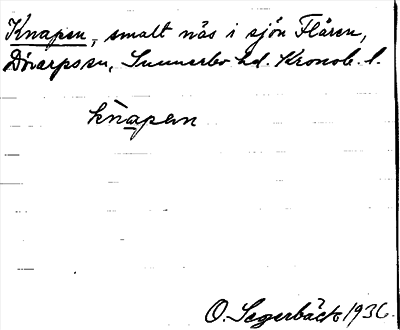 Knapen, smalt näs i sjön Flåren,
Dörarps sn, Sunnerbo hd. Kronob. l.
knapen
O. Segerbäck 1936.